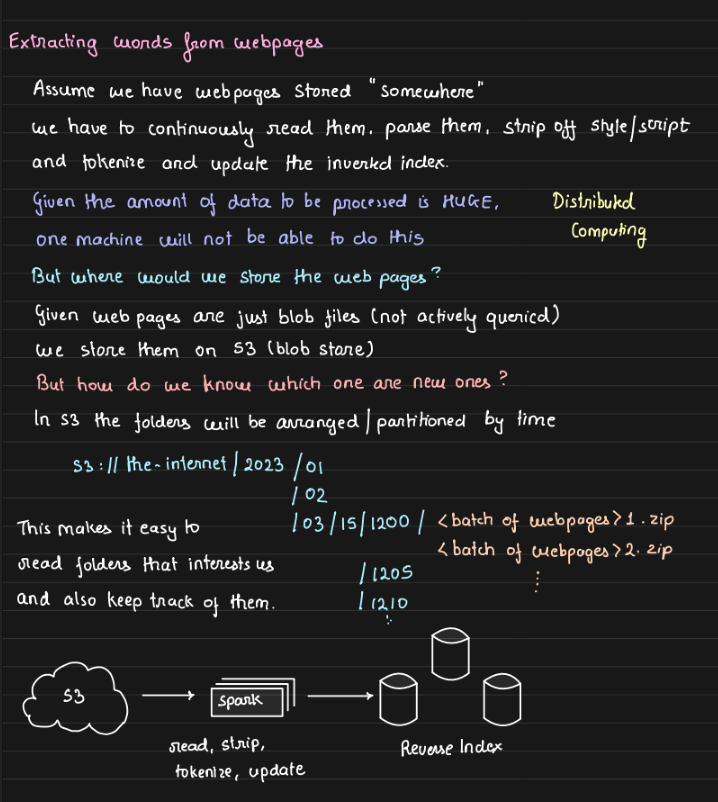 Extracting words from webpages
Assume we have webpages stored "somewhere"
we have to continuously read them, parse them, strip off style/script
and tokenize and update the inverted index.
Given the amount of data to be processed is HUGE,
one machine will not be able to do this
Distributed
Computing
But where would we store the web pages?
Given web pages are just blob files (not actively queried)
we store them on S3 (blob store)
But how do we know which one are new ones?
In S3 the folders will be arranged/partitioned by time
S3://the-internet/2023/01
/02
/03/15/1200/ <batch of webpages>1.zip
<batch of webpages>2.zip
/1205
/1210
This makes it easy to
read folders that interests us
and also keep track of them.
S3
Spark
read, strip,
tokenize, update
Reverse Index